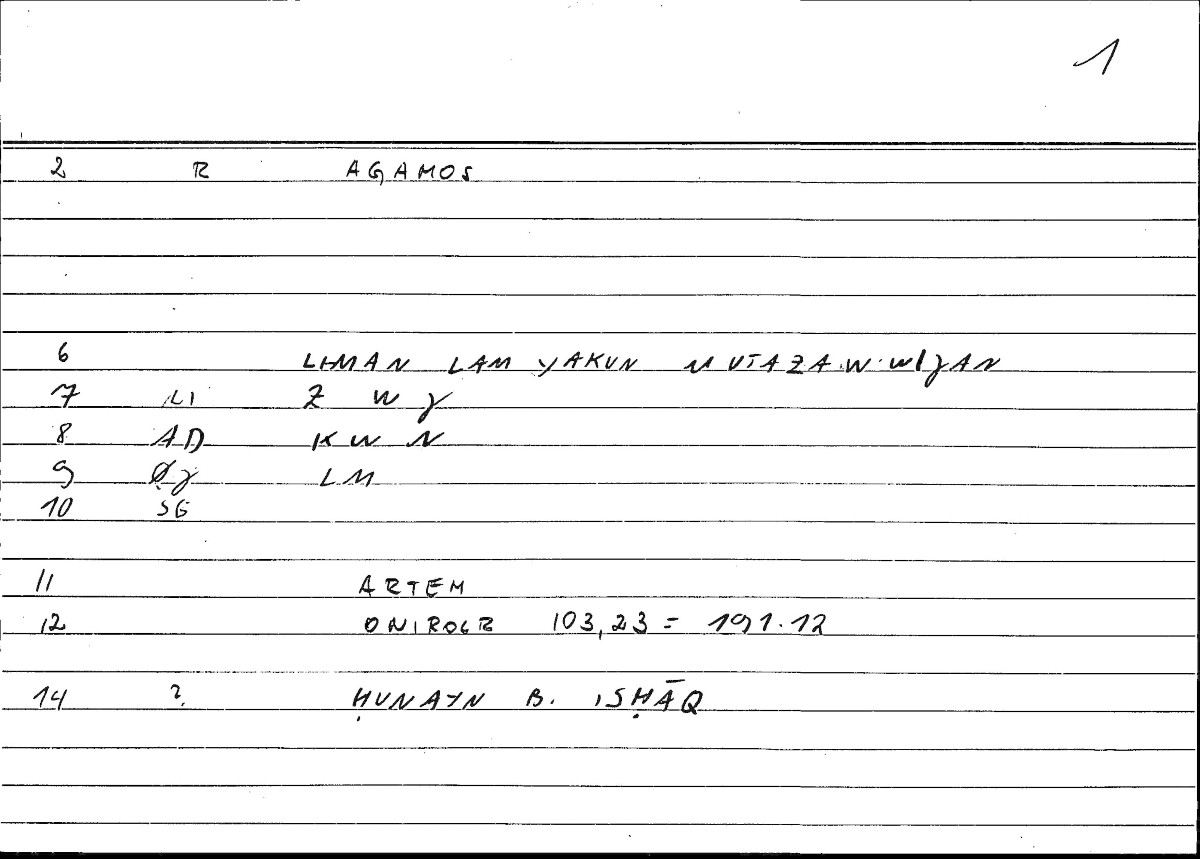 1
2 R AGAMOS
6 LIMAN LAM YAKUN MUTAZAWWIJAN
7 LI Z W J
8 AD K W N
9 Øj LM
10 SG
11 ARTEM
12 ONIROCR 103,23 = 191.12
14 ? ḤUNAYN B. ISḤĀQ